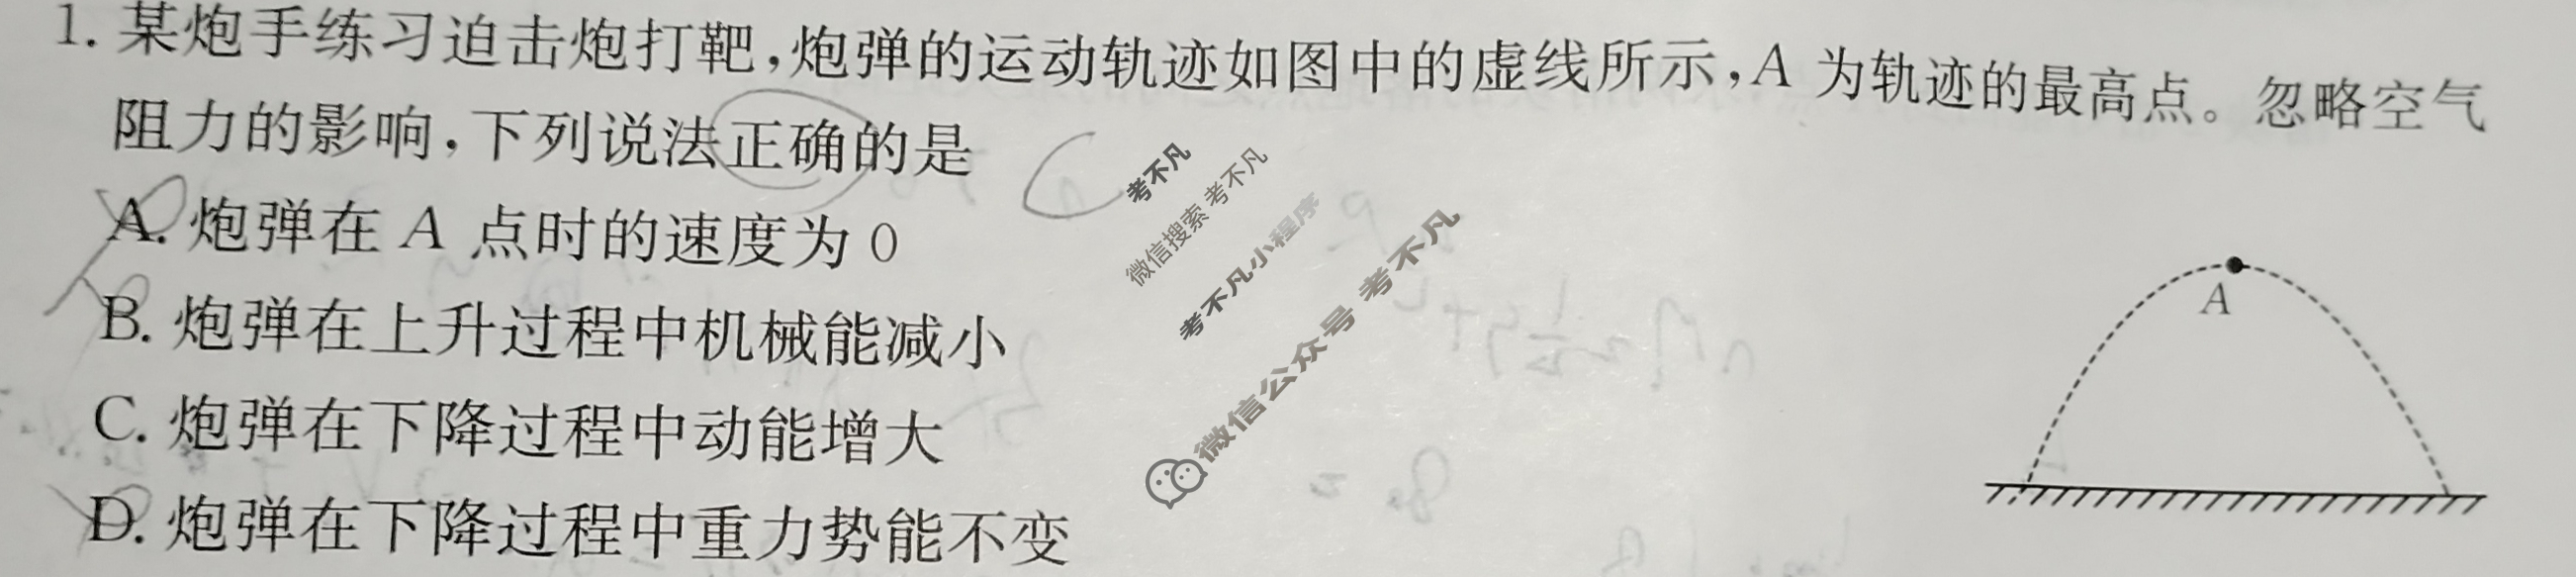 1. 某炮手练习迫击炮打靶,炮弹的运动轨迹如图中的虚线所示,A 为轨迹的最高点。忽略空气
阻力的影响,下列说法正确的是
A. 炮弹在 A 点时的速度为 0
B. 炮弹在上升过程中机械能减小
C. 炮弹在下降过程中动能增大
D. 炮弹在下降过程中重力势能不变
C
考不凡
微信搜索 考不凡
考不凡小程序
微信公众号 考不凡
A